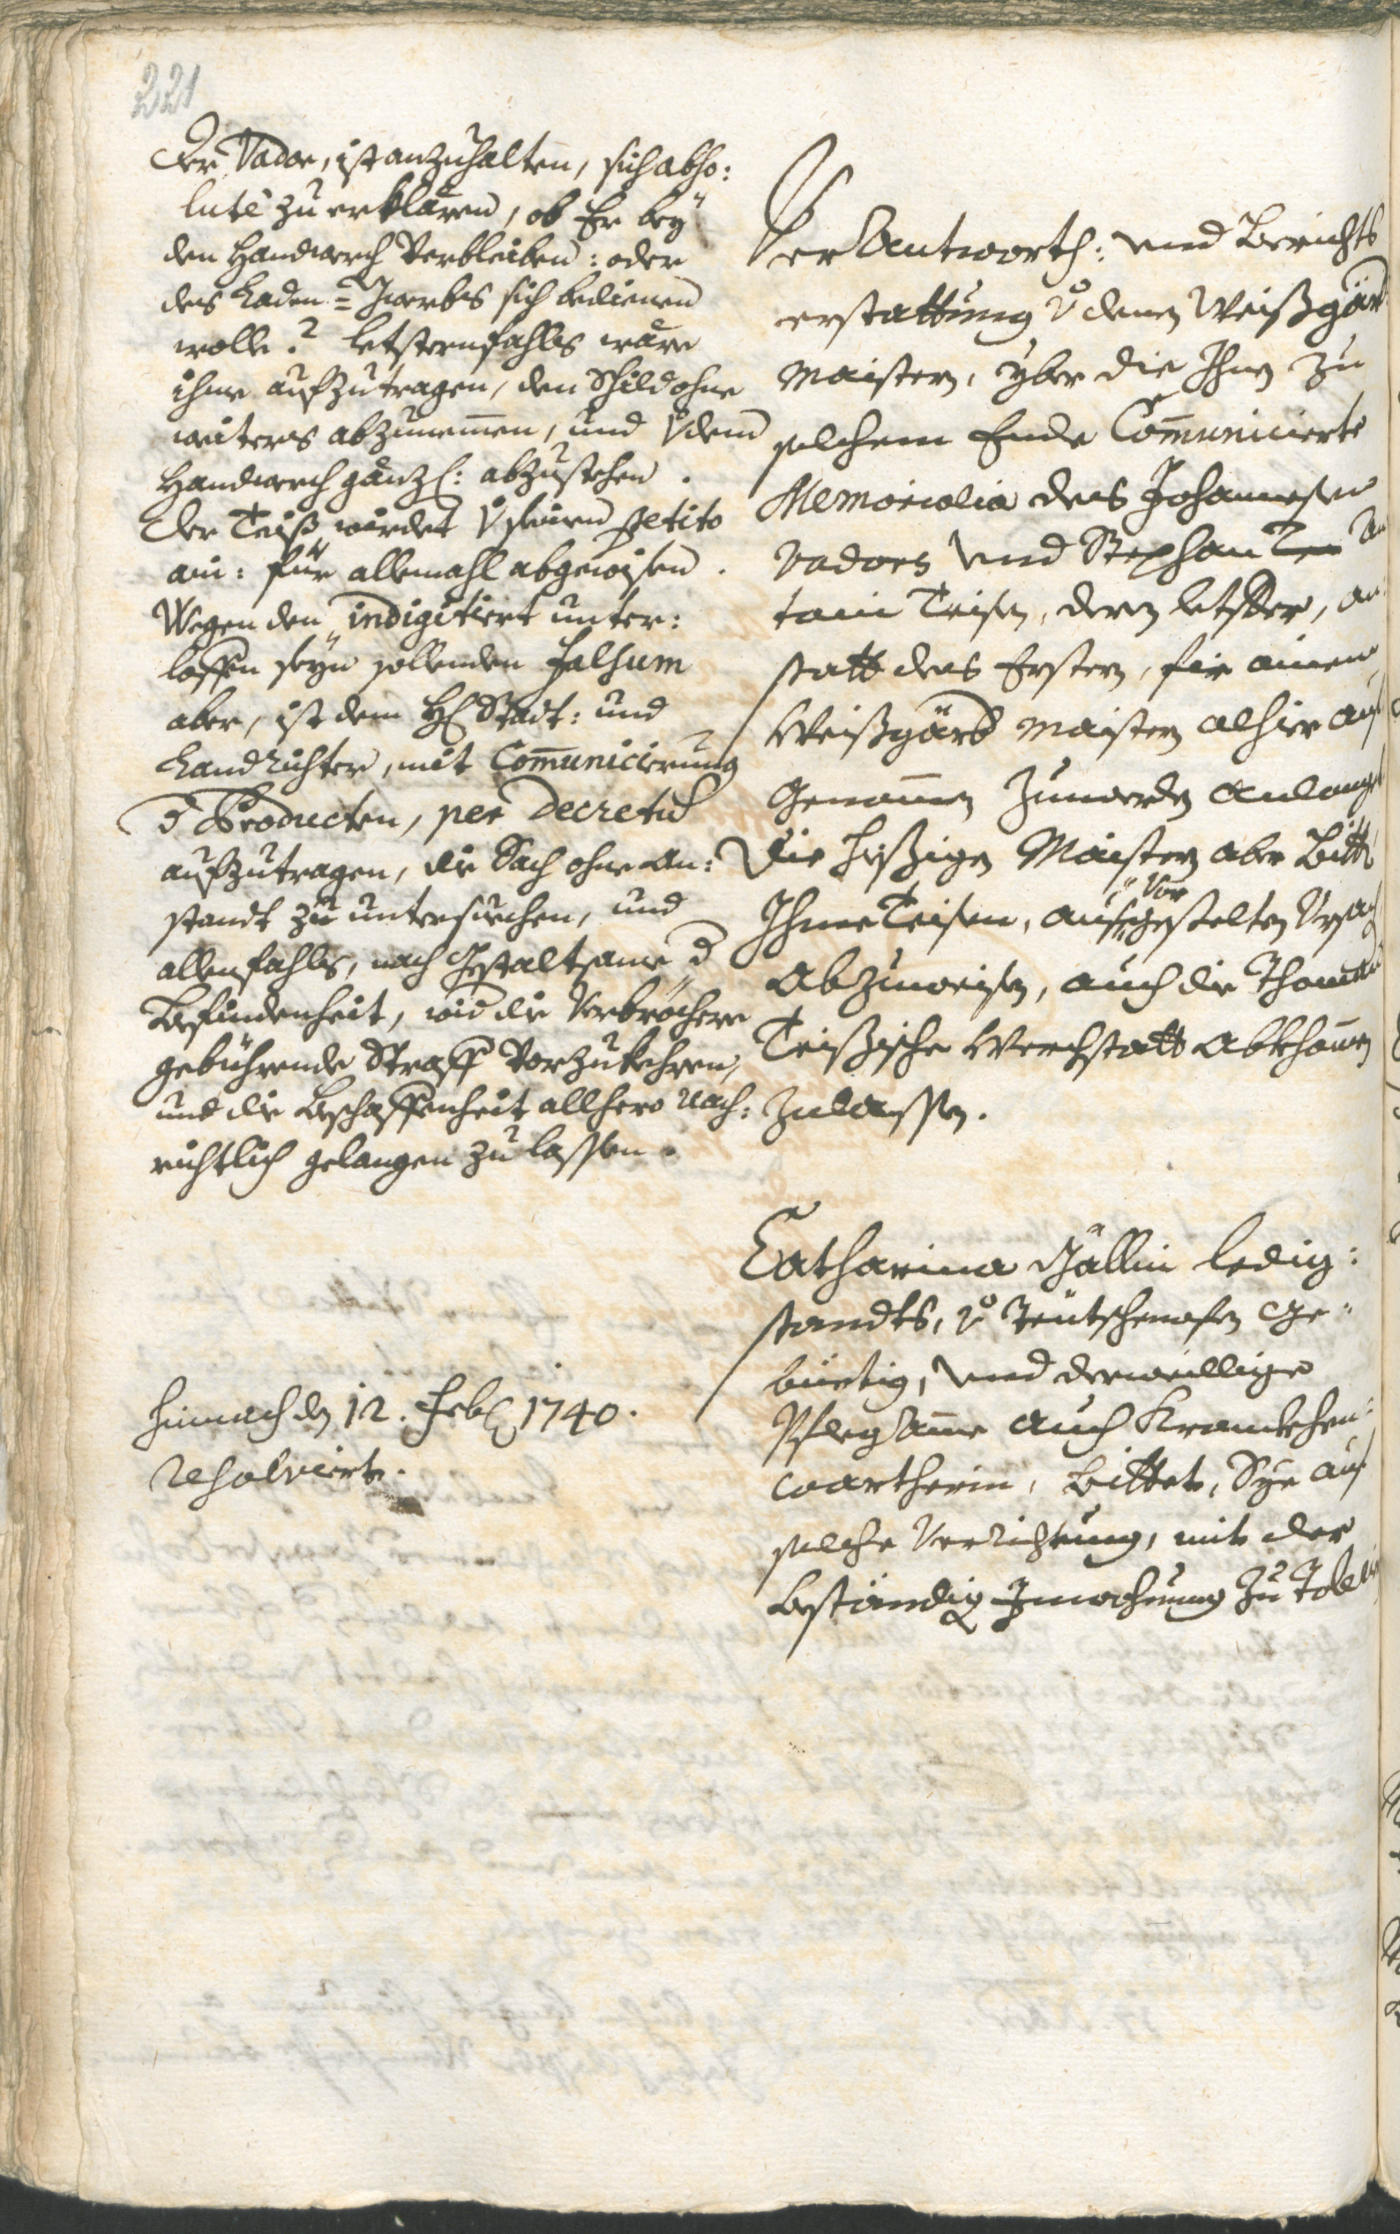 221
Der Vador, ist anzuhalten, sich abso:
lutè zu erklären, ob Er bey
den Handwerch Verbleiben: oder
des Laden=Gwerbs sich bedienen
wolle? letsternfahls wäre
ihme aufzutragen, den Schild ohne
weiters abzunemen, und v dem
Handwerch gänzl: abzustehen.
Der Teiß wirdet v seinen petito
ain: für allemahl abgewisen.
Wegen den indigitiert unter:
loffen seyn sollenden Falsum
aber, ist dem H Stadt: und
Landrichter, mit Comunicierung
d Producten, per Decretu
aufzutragen, die Sach ohne An:
standt zu untersuechen, und
allenfahls, nach gestaltsame d
Befindenheit, wid die Verbröchere
gebührende Straff Vorzukehren,
und die Beschaffenheit allhero Nach:
richtlich gelangen zu lassen.
Verantworth: und Berichts
erstattung v denen Weißgärb
Maistern, yber die Ihnen zu
solchem Ende Comunicierte
Memorialia des Johannesen
Vadors und Stephan
toni Teisen, deren letster, an
statt des Erstern, für ainen
Weißgärb Maistern alhier auf
genomen zuwerden anlangt
Die hießigen Maistern aber Bitt
Ihme Teisen, auß Vor gestelten Ursach
Abzuweisen, auch die Thoman
Teißische Werchstatt Abkhomen
zulassen.
Catharina Gällin ledig:
standts, v Teütschenofen ge:
bürtig, und derweillige
Pfleg Ame auch Kranckhen:
wartherin, bittet, Sye auf
solche Verrichtung, mit der
beständig Inwohnung zu
hinnach den 12. Feb 1740.
resolviert.